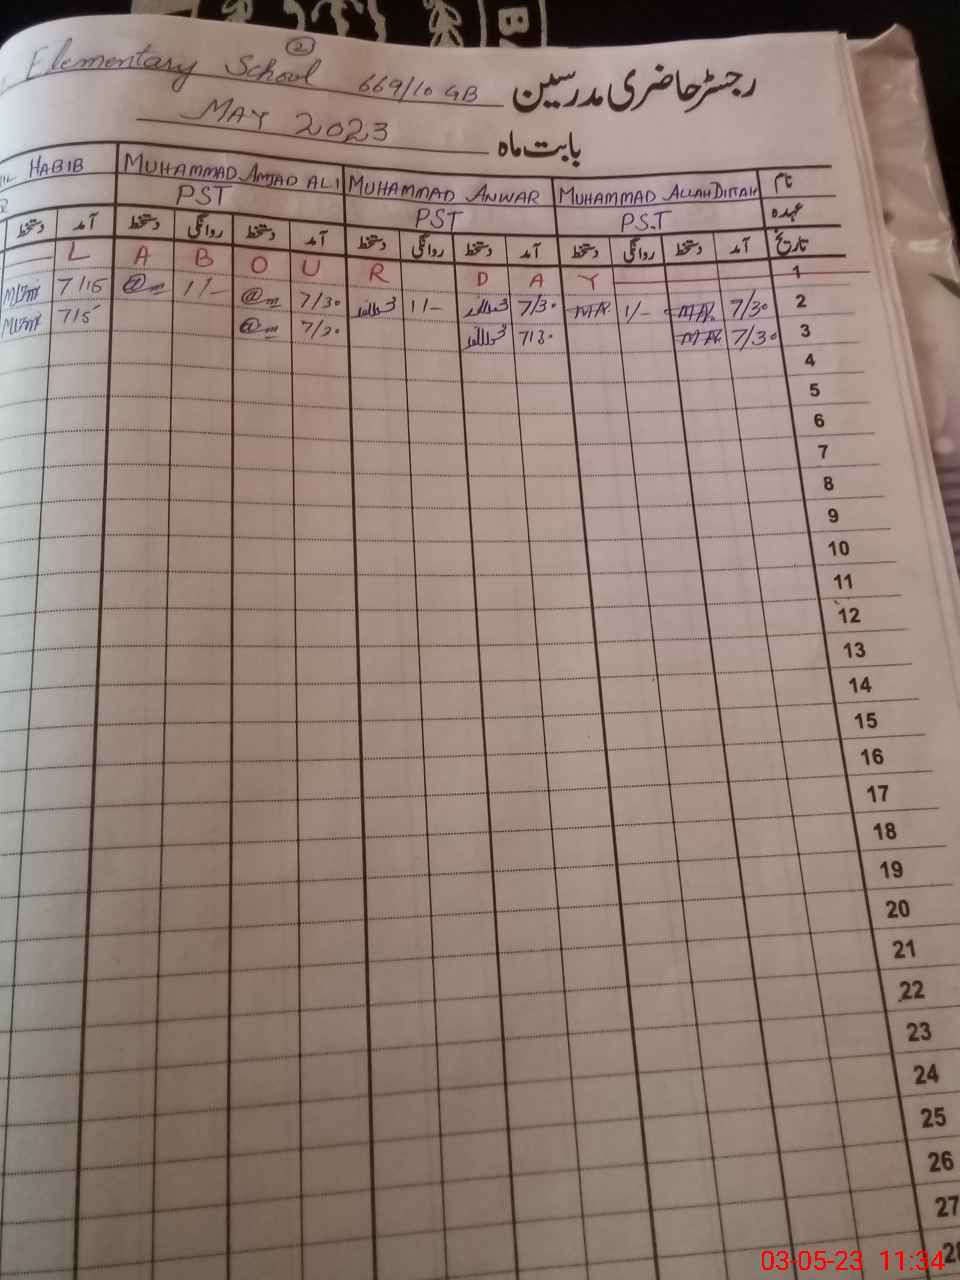 Elementary School 2 669/10 GB رجسٹر حاضری مدرسین
MAY 2023 بابت ماہ
HABIB MUHAMMAD AMJAD ALI MUHAMMAD ANWAR MUHAMMAD ALLAH DITTAH نام
PST PST PST عہدہ
دستخط آمد دستخط روانگی دستخط آمد دستخط روانگی دستخط آمد دستخط روانگی دستخط آمد تاریخ
L A B O U R D A Y 1
7/15 1/- 7/30 1/- 7/30 MA 1/- MA 7/30 2
7/5 7/30 7/30 MA 7/30 3
4
5
6
7
8
9
10
11
12
13
14
15
16
17
18
19
20
21
22
23
24
25
26
27
28
03-05-23 11:34